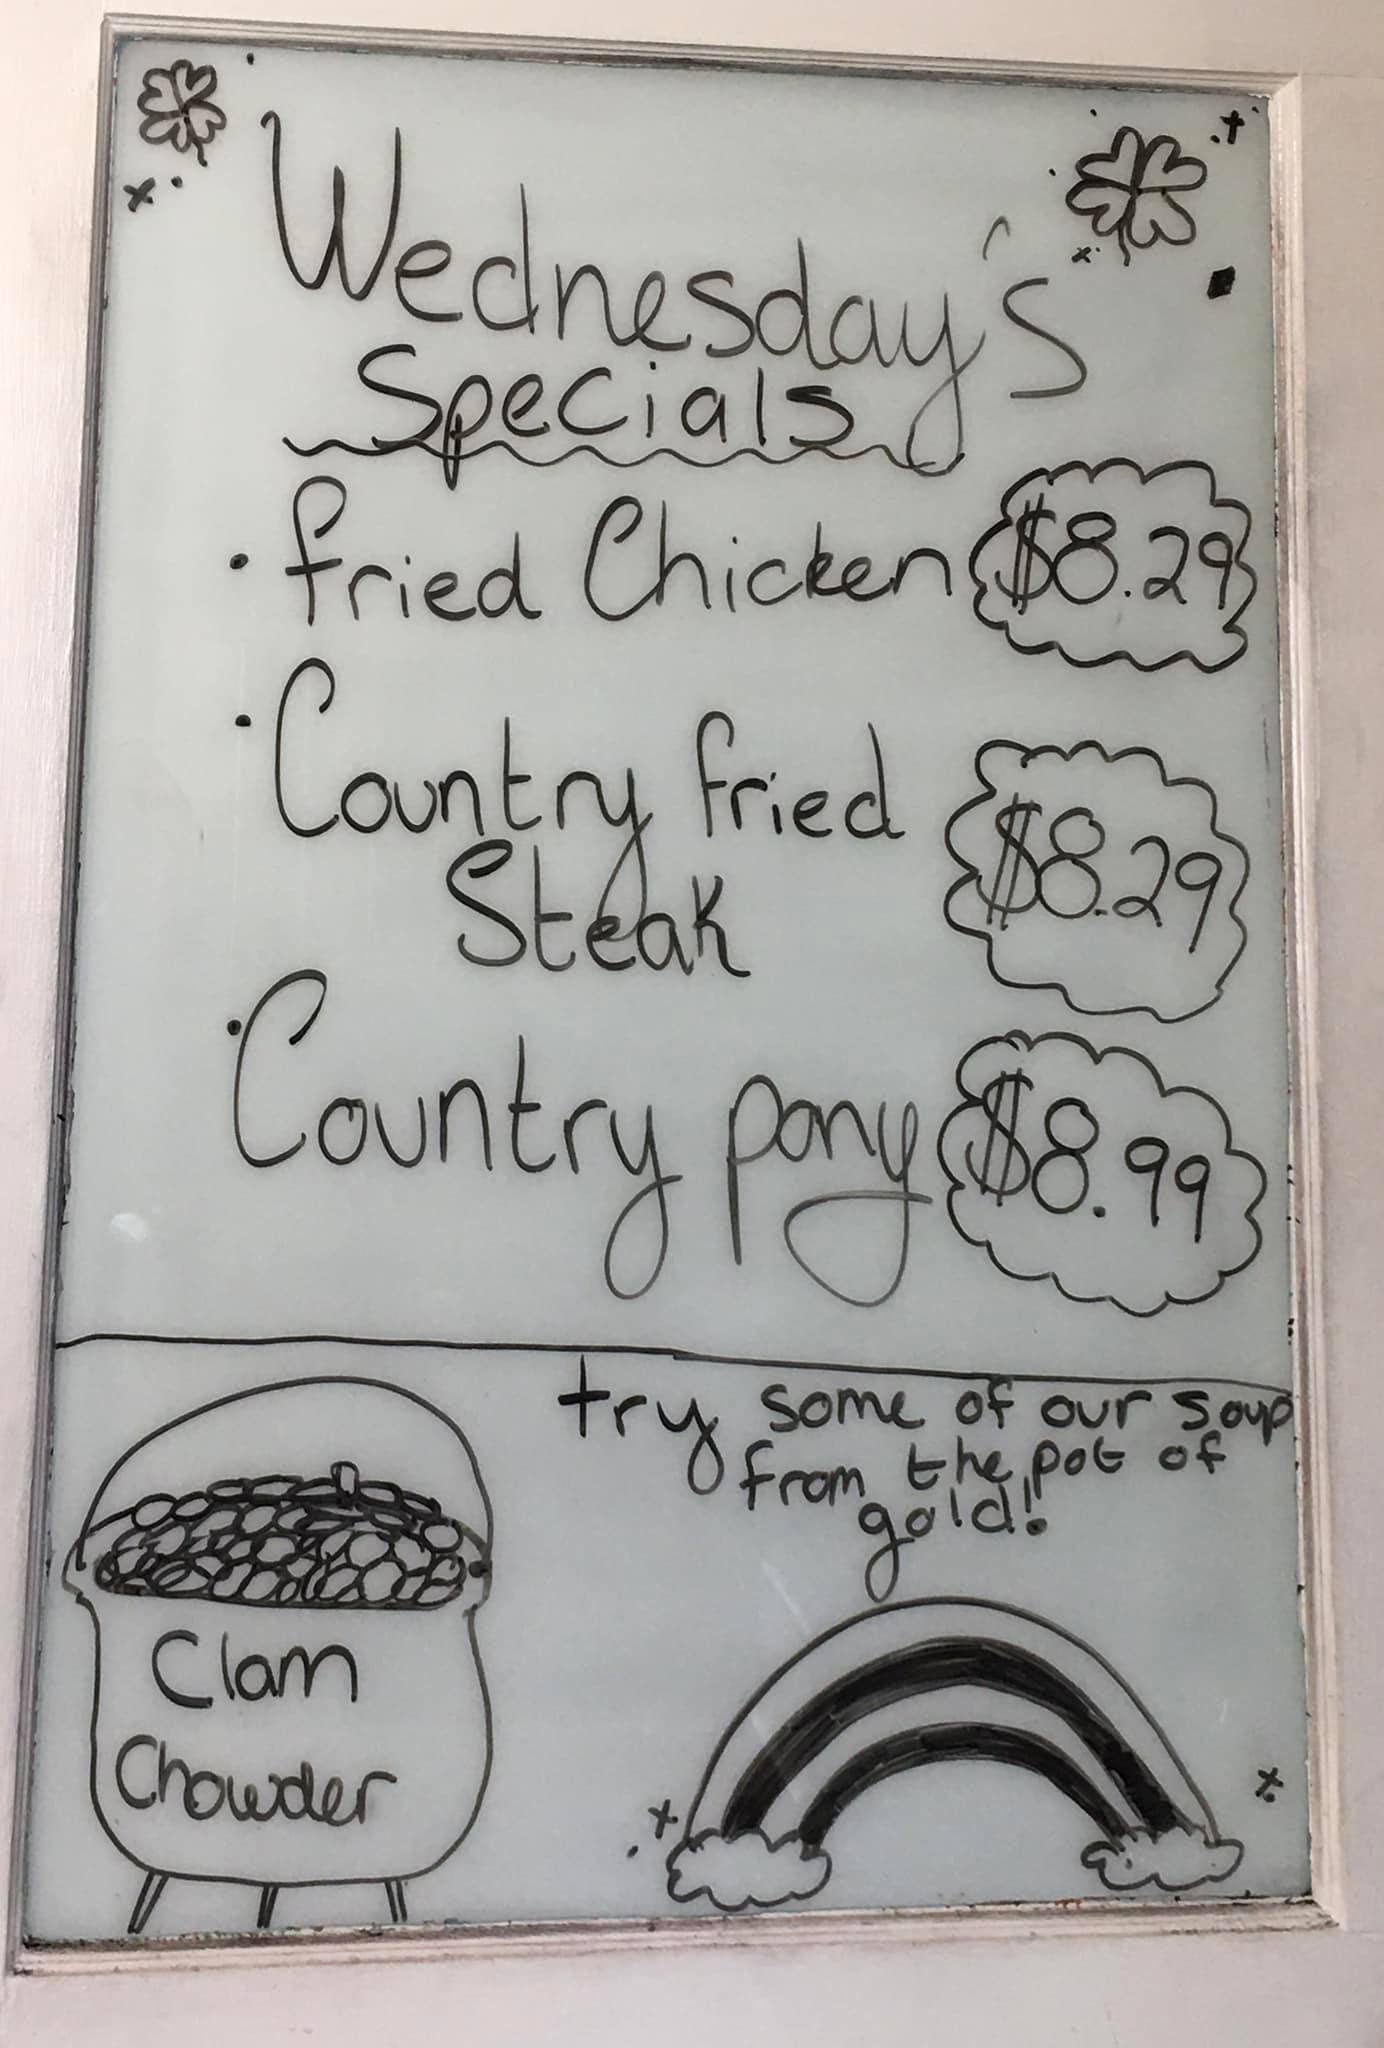 Wednesday's
Specials
• fried Chicken $8.29
• Country fried $8.29
Steak
• Country pony $8.99
try some of our soup
from the pot of
gold!
Clam
Chowder